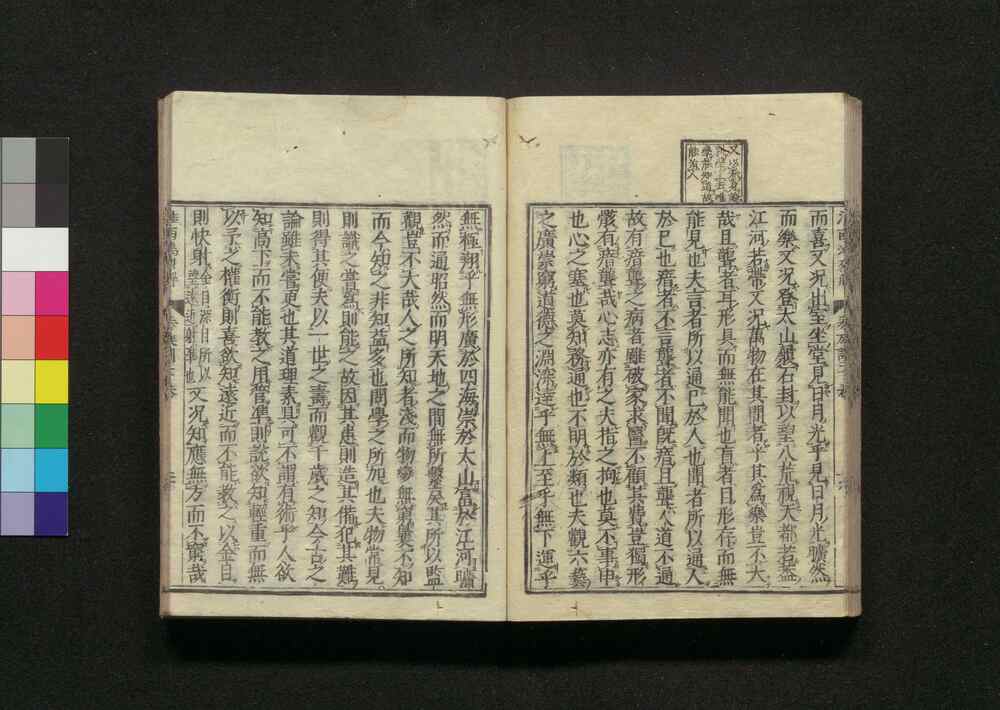 而喜又況出室坐堂見日月光乎見日月光曠然
而樂又況登太山履石封以望八荒視天都若蓋
江河若帶又況萬物在其間者乎其爲樂豈不大
哉且聾者耳形具而無能聞也盲者目形存而無
能見也夫言者所以通己於人也聞者所以通人
於己也瘖者不言聾者不聞既瘖且聾人道不通
故有瘖聾之病者雖破家求醫不顧其費豈獨形
骸有瘖聾哉心志亦有之夫指之拘也莫不事申
也心之塞也莫知務通也不明於類也夫觀六藝
之廣崇窮道德之淵深達乎無上至乎無下運乎
無極翔乎無形廣於四海崇於太山富於江河曠
然而通昭然而明天地之間無所繫戾其所以監
觀豈不大哉人之所知者淺而物變無窮曩不知
而今知之非知益多也問學之所加也夫物常見
則識之嘗爲則能之故因其患則造其備犯其難
則得其便夫以一世之壽而觀千歲之知今古之
論雖未嘗更也其道理素具可不謂有術乎人欲
知高下而不能教之用管準則說欲知輕重而無
以予之權衡則喜欲知遠近而不能教之以金目
則快射金目深目所以望遠近射準也又況知應無方而不窮哉